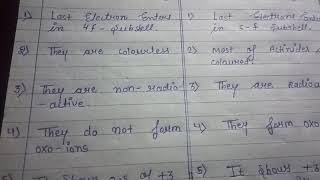 1) Last Electron Enters
in 4f - subshell.
2) They are colourless
3) They are non-radio
-active.
4) They do not form
oxo-ions
of +3
1) Last Electrons Enters
in 5-f subshell.
2) Most of Actinides
coloured.
3) They are Radioa
4) They form oxo
5) It shows +3